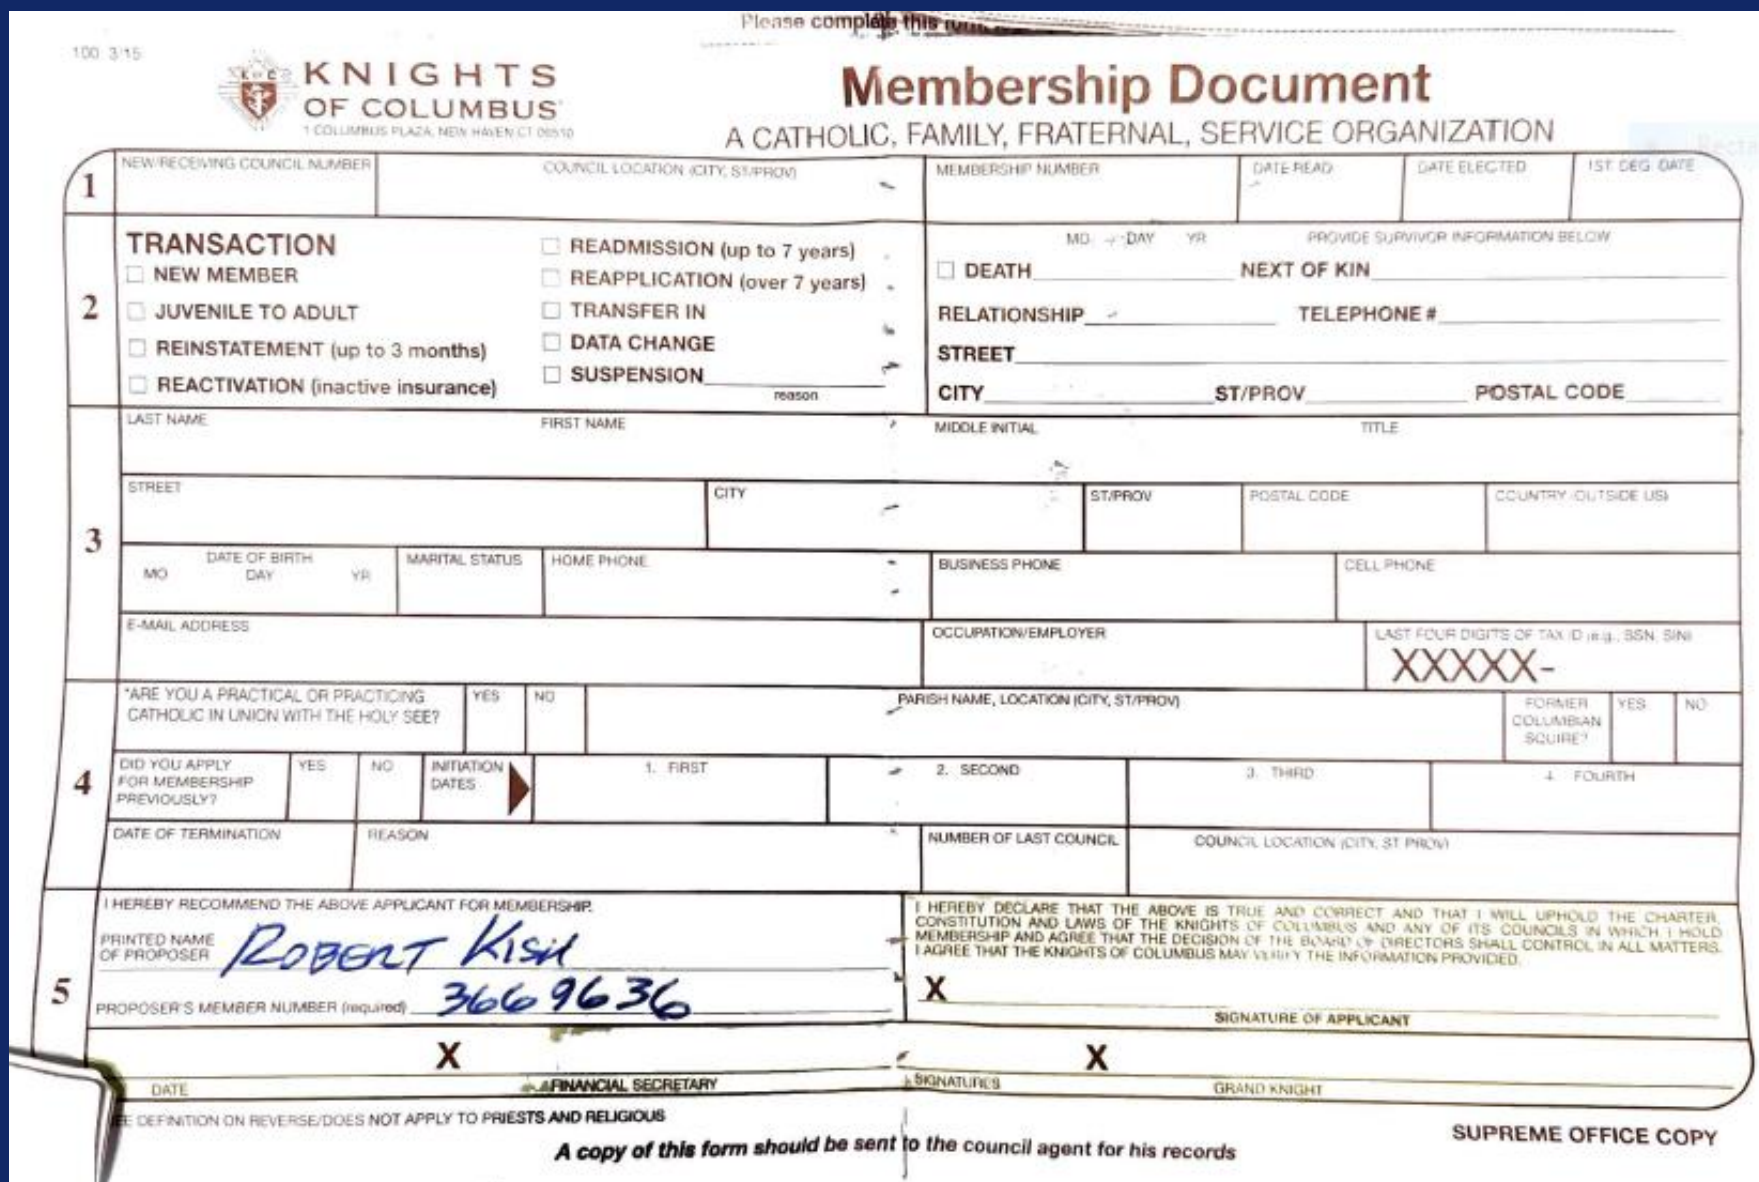 Please complete this form
100 3/15
KNIGHTS
OF COLUMBUS
1 COLUMBUS PLAZA, NEW HAVEN CT 06510
Membership Document
A CATHOLIC, FAMILY, FRATERNAL, SERVICE ORGANIZATION
1
NEW/RECEIVING COUNCIL NUMBER
COUNCIL LOCATION (CITY, ST/PROV)
MEMBERSHIP NUMBER
DATE READ
DATE ELECTED
1ST DEG. DATE
2
TRANSACTION
NEW MEMBER
JUVENILE TO ADULT
REINSTATEMENT (up to 3 months)
REACTIVATION (inactive insurance)
READMISSION (up to 7 years)
REAPPLICATION (over 7 years)
TRANSFER IN
DATA CHANGE
SUSPENSION
reason
MO DAY YR PROVIDE SURVIVOR INFORMATION BELOW
DEATH NEXT OF KIN
RELATIONSHIP TELEPHONE #
STREET
CITY ST/PROV POSTAL CODE
3
LAST NAME FIRST NAME MIDDLE INITIAL TITLE
STREET CITY ST/PROV POSTAL CODE COUNTRY (OUTSIDE US)
DATE OF BIRTH MARITAL STATUS HOME PHONE BUSINESS PHONE CELL PHONE
MO DAY YR
E-MAIL ADDRESS OCCUPATION/EMPLOYER LAST FOUR DIGITS OF TAX ID (e.g., SSN, SIN)
XXXXX-
4
*ARE YOU A PRACTICAL OR PRACTICING
CATHOLIC IN UNION WITH THE HOLY SEE?
YES NO
PARISH NAME, LOCATION (CITY, ST/PROV)
FORMER
COLUMBIAN
SQUIRE?
YES NO
DID YOU APPLY
FOR MEMBERSHIP
PREVIOUSLY?
YES NO
INITIATION
DATES
1. FIRST 2. SECOND 3. THIRD 4. FOURTH
DATE OF TERMINATION REASON NUMBER OF LAST COUNCIL COUNCIL LOCATION (CITY, ST PROV)
5
I HEREBY RECOMMEND THE ABOVE APPLICANT FOR MEMBERSHIP.
PRINTED NAME
OF PROPOSER
ROBERT KISH
PROPOSER'S MEMBER NUMBER (required) 3669636
I HEREBY DECLARE THAT THE ABOVE IS TRUE AND CORRECT AND THAT I WILL UPHOLD THE CHARTER,
CONSTITUTION AND LAWS OF THE KNIGHTS OF COLUMBUS AND ANY OF ITS COUNCILS IN WHICH I HOLD
MEMBERSHIP AND AGREE THAT THE DECISION OF THE BOARD OF DIRECTORS SHALL CONTROL IN ALL MATTERS.
I AGREE THAT THE KNIGHTS OF COLUMBUS MAY VERIFY THE INFORMATION PROVIDED.
X
SIGNATURE OF APPLICANT
X X
DATE FINANCIAL SECRETARY SIGNATURES GRAND KNIGHT
DEFINITION ON REVERSE/DOES NOT APPLY TO PRIESTS AND RELIGIOUS
A copy of this form should be sent to the council agent for his records
SUPREME OFFICE COPY